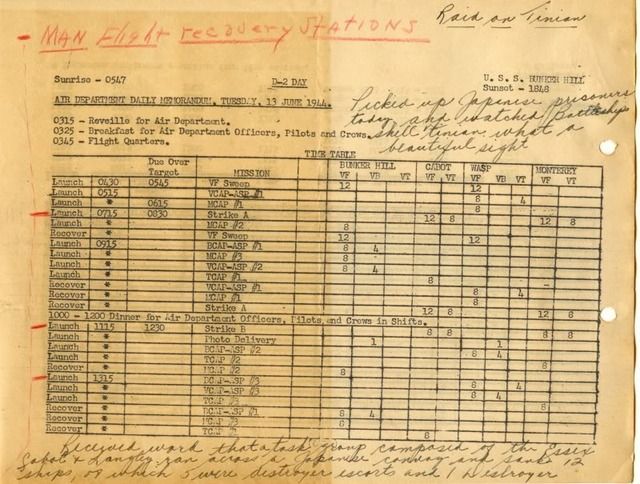 Raid on Tinian
- MAN Flight recovery STATIONS
Sunrise - 0547 D-2 DAY U. S. S. BUNKER HILL
Sunset - 1848
AIR DEPARTMENT DAILY MEMORANDUM, TUESDAY, 13 JUNE 1944.
Picked up Japanese prisoners
today and watched Battleships
shell tinian what a
beautiful sight
0315 - Reveille for Air Department.
0325 - Breakfast for Air Department Officers, Pilots and Crews.
0345 - Flight Quarters.
TIME TABLE
BUNKER HILL CABOT WASP MONTEREY
Due Over
Target MISSION VF VB VT VF VT VF VT VF VT
Launch 0430 0545 VF Sweep 12 12
Launch 0515 VCAP-ASP #1 8 4
Launch * 0615 MCAP #1 8
Launch 0715 0830 Strike A 12 8 12 8
Launch * MCAP #2 8
Recover * VF Sweep 12 12
Launch 0915 BCAP-ASP #1 8 4
Launch * MCAP #3 8
Launch * VCAP-ASP #2 8 4
Launch * TCAP #1 8
Recover * VCAP-ASP #1 8 4
Recover * MCAP #1 8
Recover * Strike A 12 8 12 8
1000 - 1200 Dinner for Air Department Officers, Pilots, and Crews in Shifts.
Launch 1115 1230 Strike B 8 8 8 8
Launch * Photo Delivery 1 1
Launch * BCAP-ASP #2 8 4
Launch * TCAP #2 8
Recover * MCAP #2 8
Launch 1315 BCAP-ASP #3 8 4
Launch * VCAP-ASP #3 8 4
Launch * TCAP #3 8
Recover * BCAP-ASP #1 8 4
Recover * MCAP #3 8
Recover * TCAP 8
Received word that a task group composed of the Essex
Cabot & Langley ran across a Japanese convoy and sank 12
ships, of which 5 were destroyer escorts and 1 Destroyer